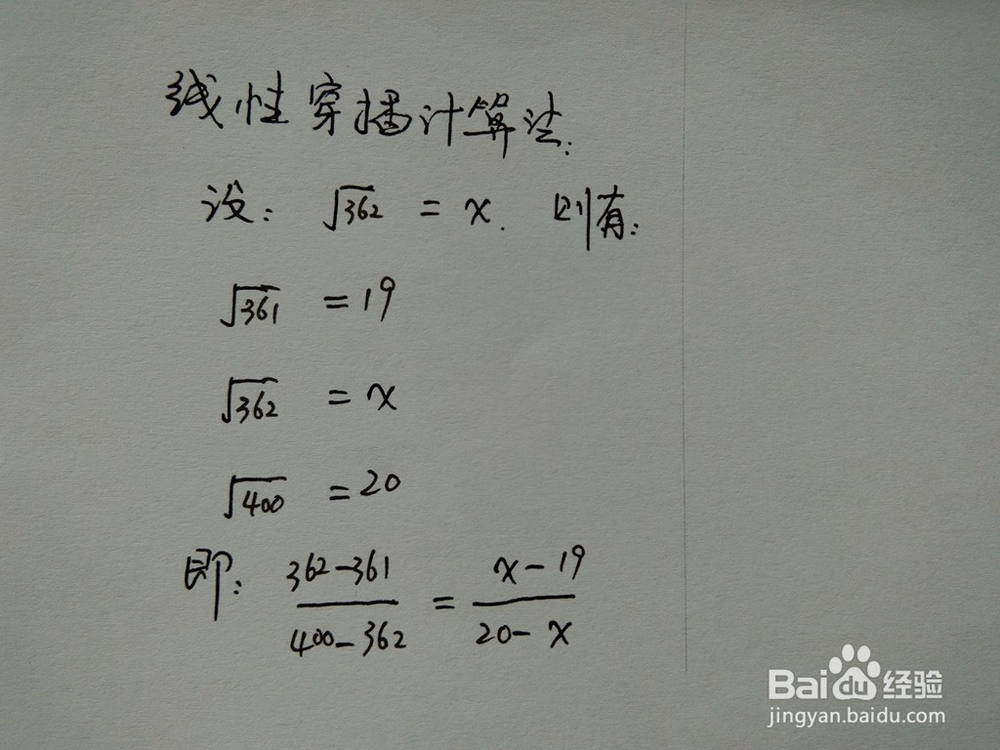 线性穿插计算法:
设: √362 = x. 则有:
√361 = 19
√362 = x
√400 = 20
即: (362-361)/(400-362) = (x-19)/(20-x)
Baidu经验
jingyan.baidu.com